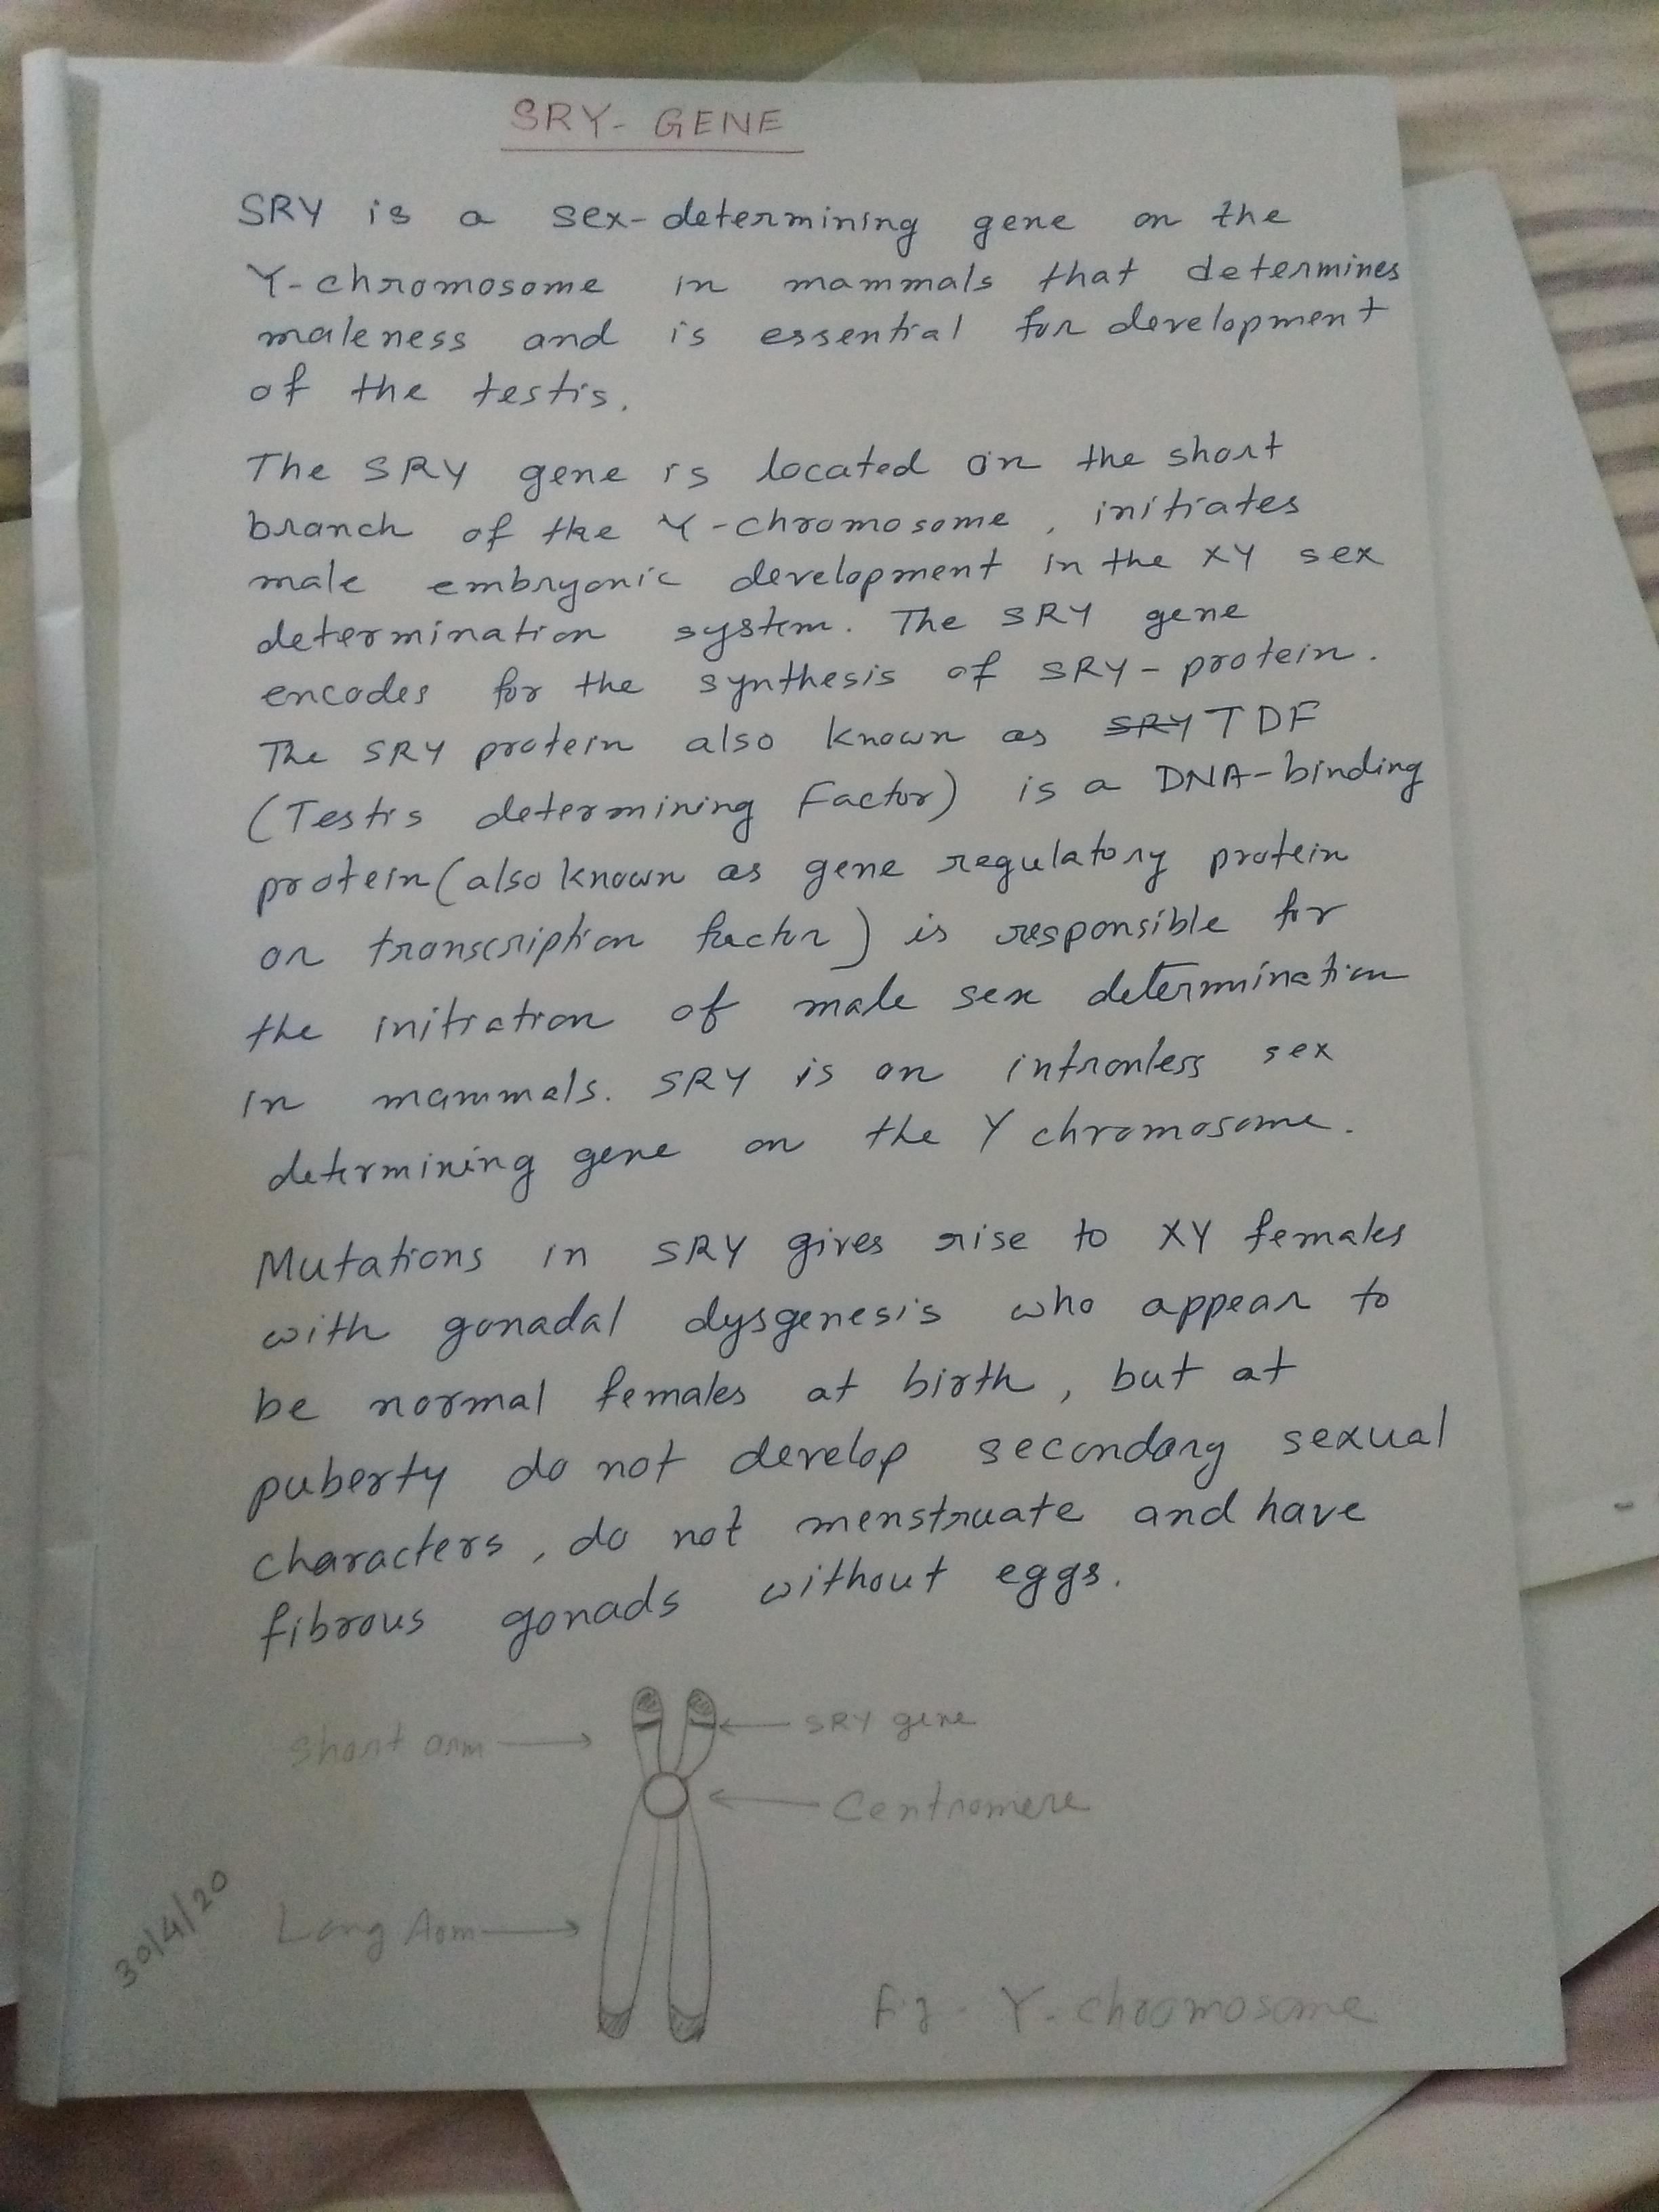 SRY- GENE
SRY is a sex-determining gene on the
Y-chromosome in mammals that determines
maleness and is essential for development
of the testis.
The SRY gene is located on the short
branch of the Y-chromosome, initiates
male embryonic development in the XY sex
determination system. The SRY gene
encodes for the synthesis of SRY-protein.
The SRY protein also known as SRY TDF
(Testis determining Factor) is a DNA-binding
protein (also known as gene regulatory protein
or transcription factor) is responsible for
the initiation of male sex determination
in mammals. SRY is an intronless sex
determining gene on the Y chromosome.
Mutations in SRY gives rise to XY females
with gonadal dysgenesis who appear to
be normal females at birth, but at
puberty do not develop secondary sexual
characters, do not menstruate and have
fibrous gonads without eggs.
Short arm
SRY gene
Centromere
Long Arm
30/4/20
Fig - Y-chromosome